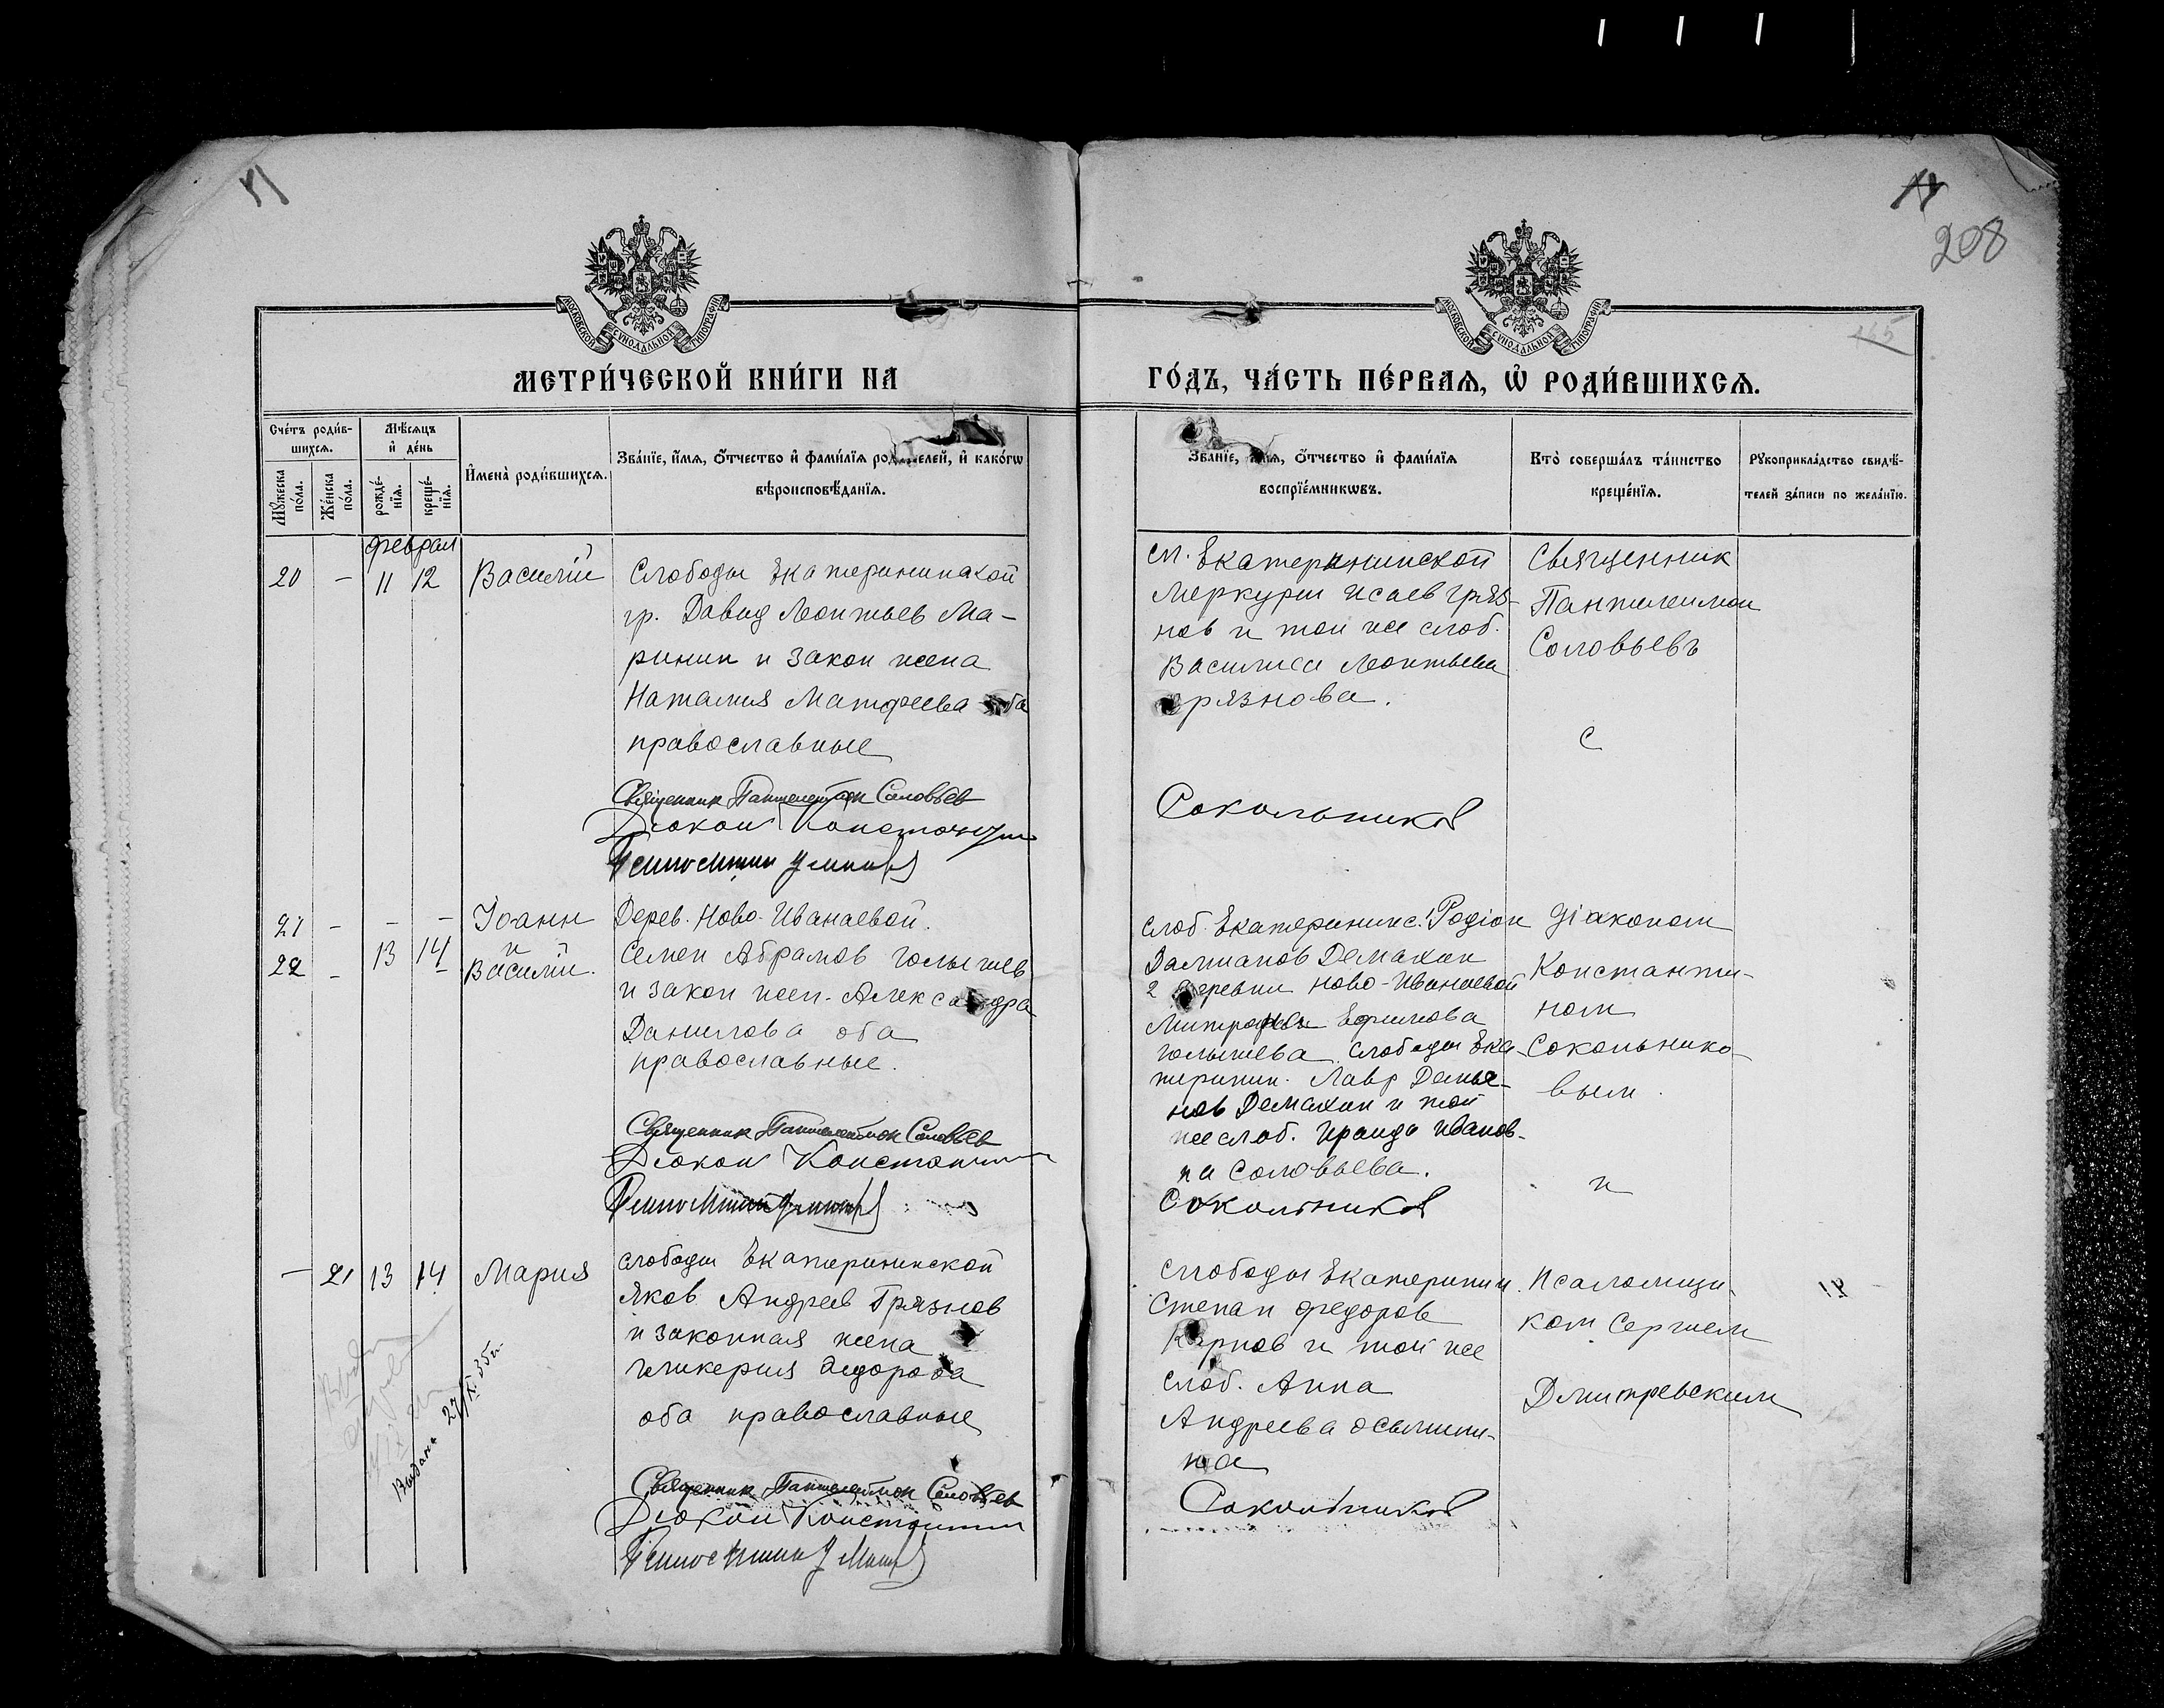 208
МЕТРИ́ЧЕСКОЙ КНИ́ГИ НА
ГО́ДЪ, ЧА́СТЬ ПЕ́РВАЯ, Ѡ҆ РОДИ́ВШИХСЯ.
Сче́тъ роди́в-
шихся.
Мѣ́сяцъ
и҆ де́нь
Мꙋ́жеска
по́ла.
Же́нска
по́ла.
рожде́-
нїя.
креще́-
нїя.
И҆мена̀ роди́вшихся.
Зва́нїе, и҆́мя, ѻ҆́тчество и҆ фами́лїя роди́телей, и҆ како́гѡ
вѣроисповѣ́данїя.
Зва́нїе, и҆́мя, ѻ҆́тчество и҆ фами́лїя
воспрїе́мникѡвъ.
Кто̀ соверша́лъ та́инство
креще́нїя.
Рꙋкоприкла́дство свидѣ́-
телей за́писи по жела́нїю.
феврал
20 — 11 12 Василій
Слободы Екатерининской
гр. Давид Леонтьев Ма-
ринин и закон жена
Наталия Матфеева оба
православные
Священник Пантелеймон Соловьев
Диакон Константин
сл. Екатерининской
Меркурий Исаев Гряз-
нов и той же слоб.
Василиса Леонтьева
Грязнова.
Сокольников
Священник
Пантелимон
Соловьевъ
С
21 — — — Іоанн
и
22 — 13 14 Василій.
Дерев. Ново-Иванаевой.
Семен Абрамов Голышев
и закон жен. Александра
Данилова оба
православные.
Священник Пантелеймон Соловьев
Диакон Константин
слоб. Екатерининс. Родіон
Демахин
2 деревни Ново-Иванаевой
Ефимова
Голышева слободы Ека-
теринин. Лавр Демья-
нов Демахин и той
же слоб. Ираида Иванов-
на Соловьева.
Сокольников
Діаконом
Константи-
ном
Сокольнико-
вым.
и
— 21 13 14 Мария
Слободы Екатерининской
Яков Андреев Грязнов
и законная жена
Гликерия
оба православные
Выдана 27/X 35 г.
Священник Пантелеймон Соловьев
Диакон Константин
Слободы Екатеринин.
Степан Федоров
и той же
слоб. Анна
Андреева Осьмини-
на
Сокольников
Псаломщи-
ком Сергием
Дмитревским